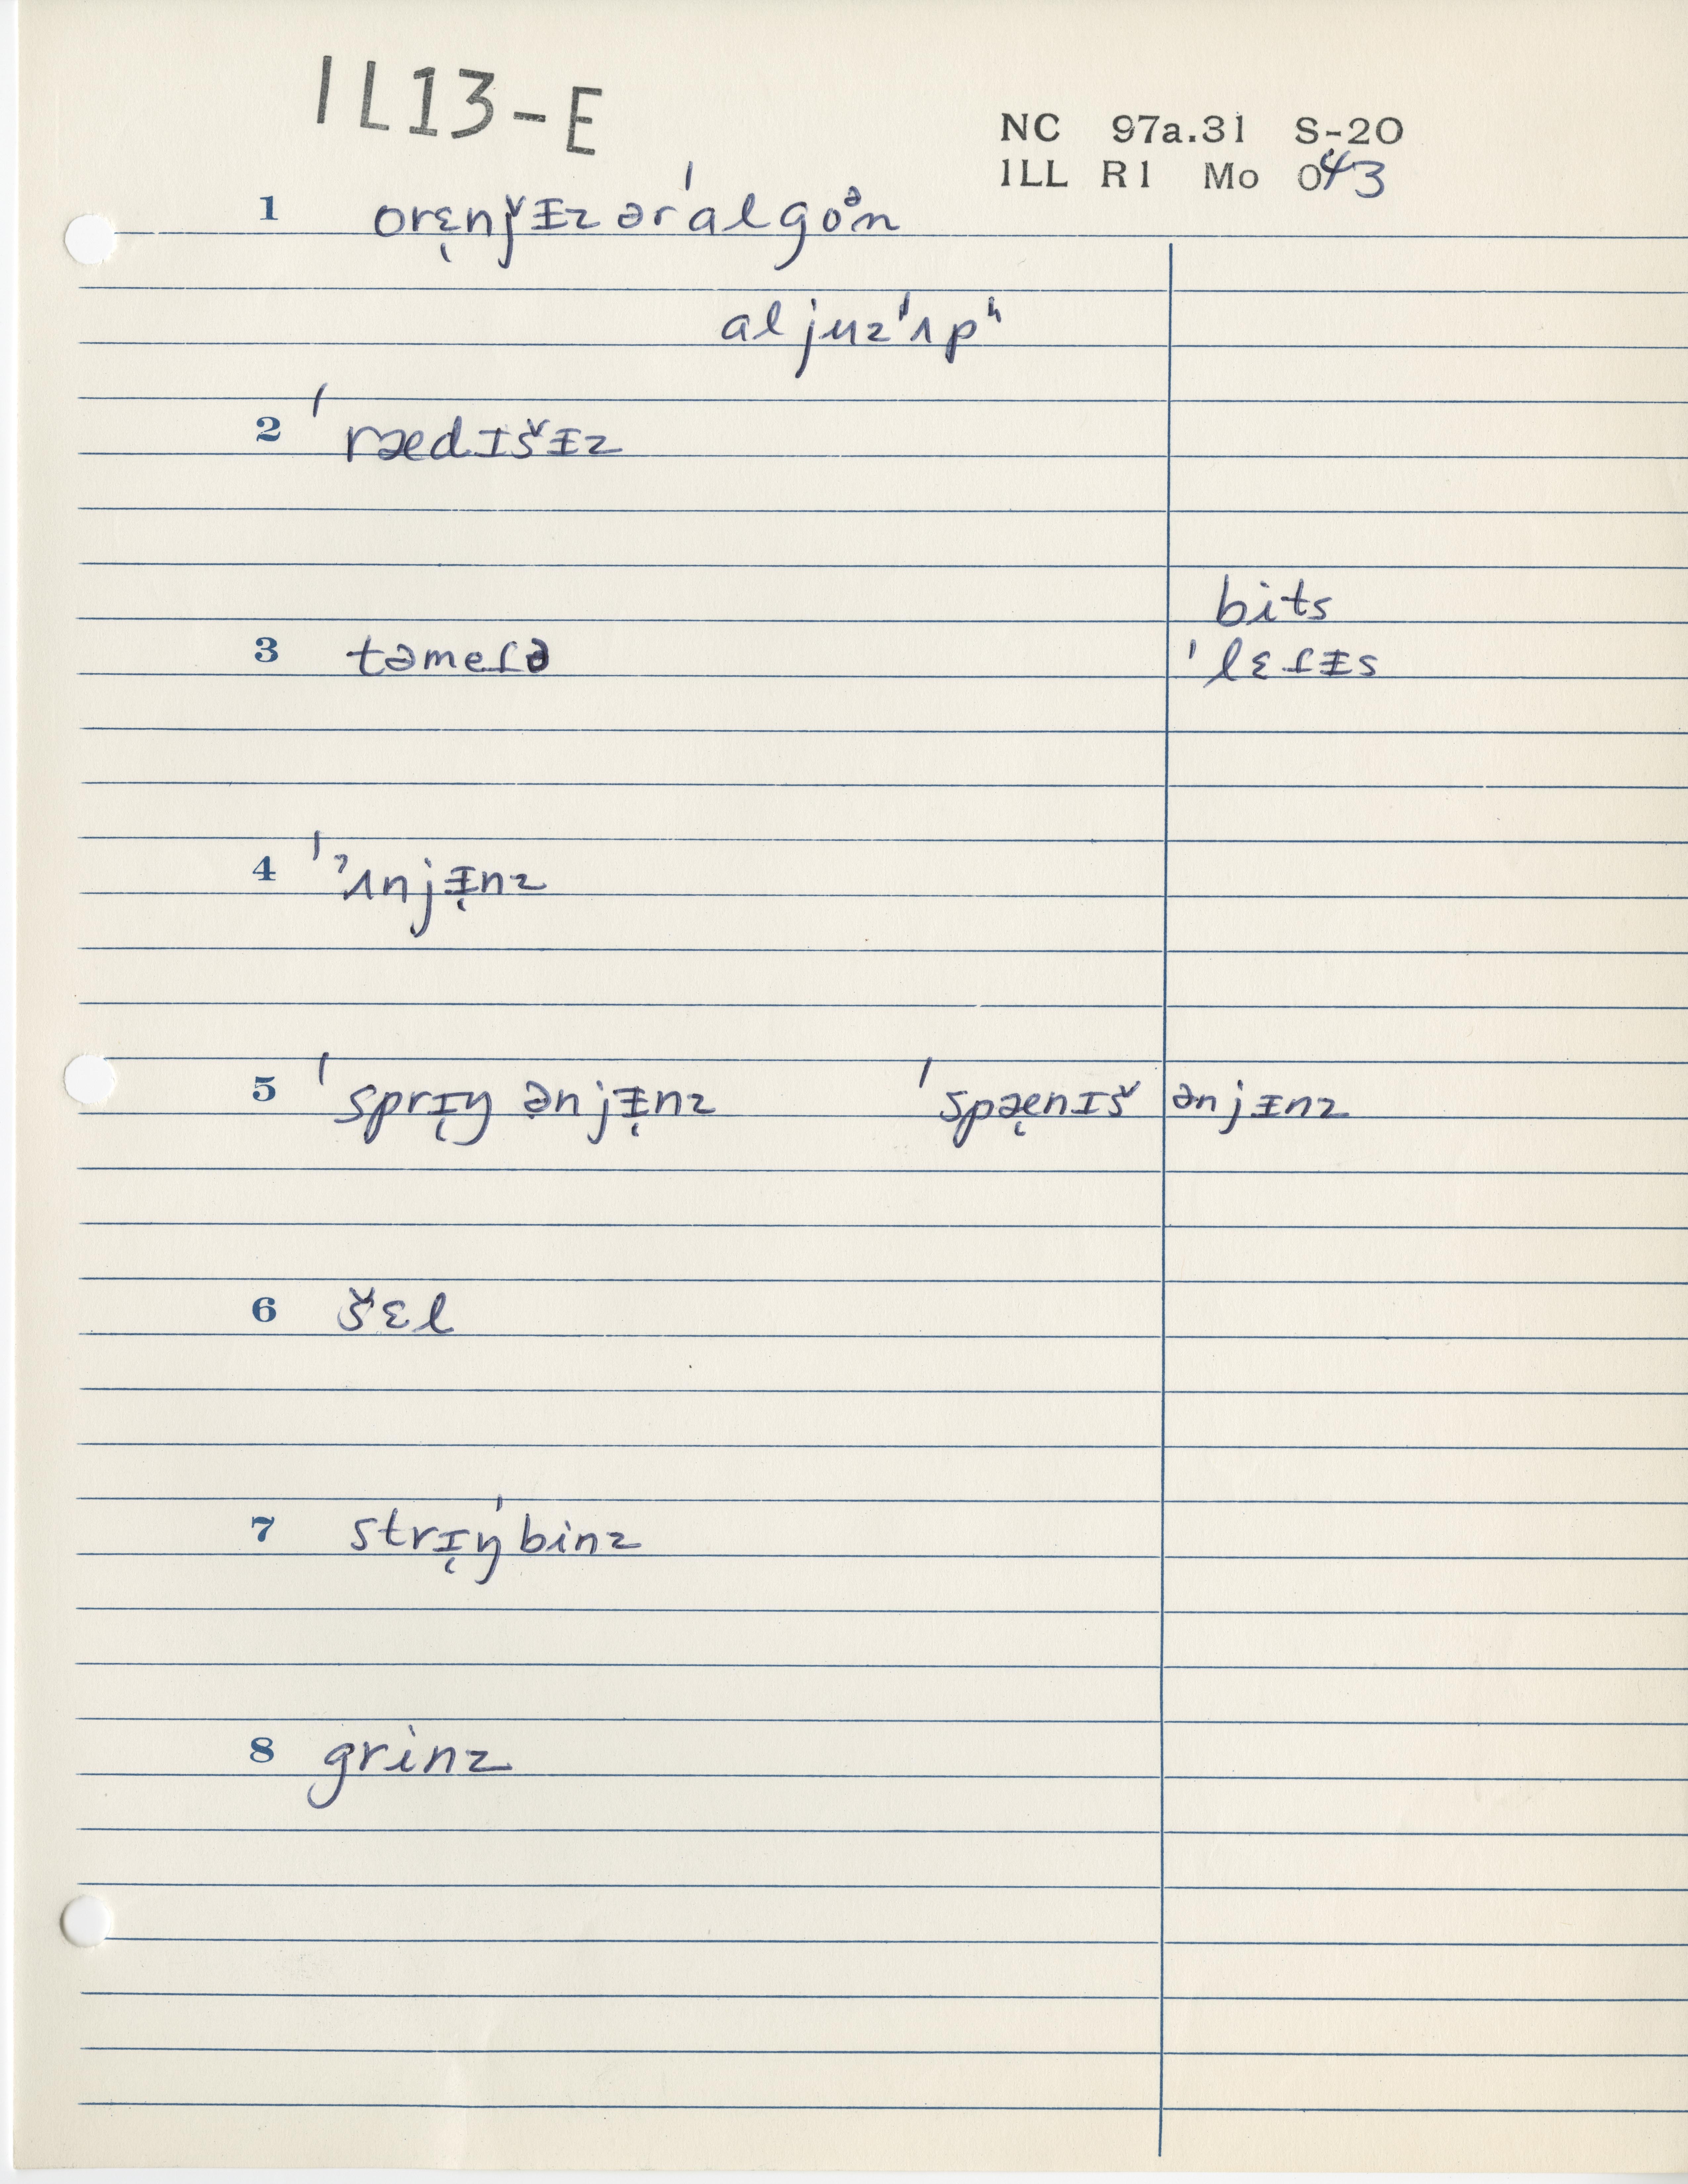 IL13-E
NC 97a.31 S-20
ILL R1 Mo 043
1 orɛ̨nǰɪ̵z ər ˈalgoᵊn
al juzˈʌpʰ
2 ˈrædɪšɪ̵z
bits
3 təmeɾə
ˈlɛɾɪ̵s
4 ˈˀʌnjɪ̵̨nz
5 ˈsprɪ̨ŋ ənjɪ̵̨nz ˈspæ̨nɪš ənjɪ̵nz
6 šɛl
7 strɪ̨ŋˈbinz
8 grinz